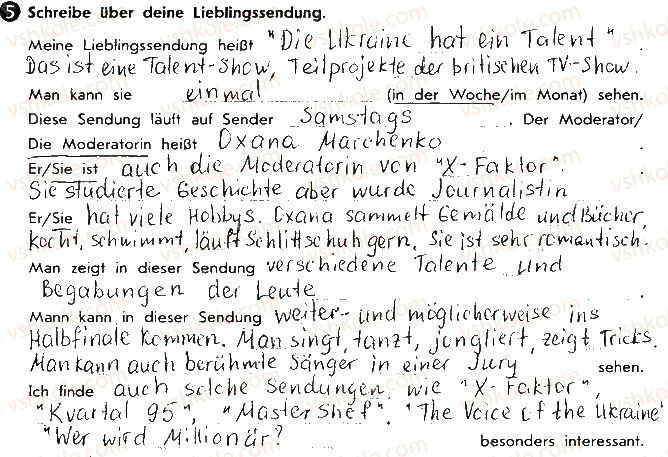 5 Schreibe über deine Lieblingssendung.
Meine Lieblingssendung heißt "Die Ukraine hat ein Talent".
Das ist eine Talent-Show, Teilprojekte der britischen TV-Show.
Man kann sie einmal (in der Woche/im Monat) sehen.
Diese Sendung läuft auf Sender Samstags. Der Moderator/
Die Moderatorin heißt Oxana Marchenko
Er/Sie ist auch die Moderatorin von "X-Faktor".
Sie studierte Geschichte aber wurde Journalistin
Er/Sie hat viele Hobbys. Oxana sammelt Gemälde und Bücher,
kocht, schwimmt, läuft Schlittschuh gern. Sie ist sehr romantisch.
Man zeigt in dieser Sendung verschiedene Talente und
Begabungen der Leute
Mann kann in dieser Sendung weiter- und möglicherweise ins
Halbfinale kommen. Man singt, tanzt, jongliert, zeigt Tricks.
Man kann auch berühmte Sänger in einer Jury sehen.
Ich finde auch solche Sendungen wie "X-Faktor",
"Kvartal 95", "Master Shef", "The Voice of the Ukraine"
"Wer wird Millionär? besonders interessant.